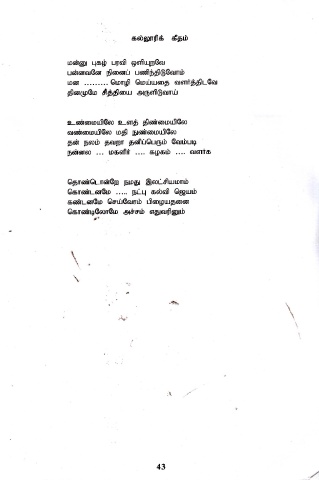 கல்லூரிக் கீதம்
மன்னு புகழ் பரவி ஒளியுறவே
பன்னவனே நினைப் பணிந்திடுவோம்
மன ......... மொழி மெய்யதை வளர்த்திடவே
தினமுமே சித்தியை அருளிடுவாய்
உண்மையிலே உளத் திண்மையிலே
வண்மையிலே மதி நுண்மையிலே
தன் நலம் தவறா தனிப்பெரும் வேம்படி
நன்னல ... மகளிர் .... கழகம் .... வளர்க
தொண்டொன்றே நமது இலட்சியமாம்
கொண்டனமே ..... நட்பு கல்வி ஜெயம்
கண்டனமே செய்வோம் பிழையதனை
கொண்டிலோமே அச்சம் எதுவரினும்
43